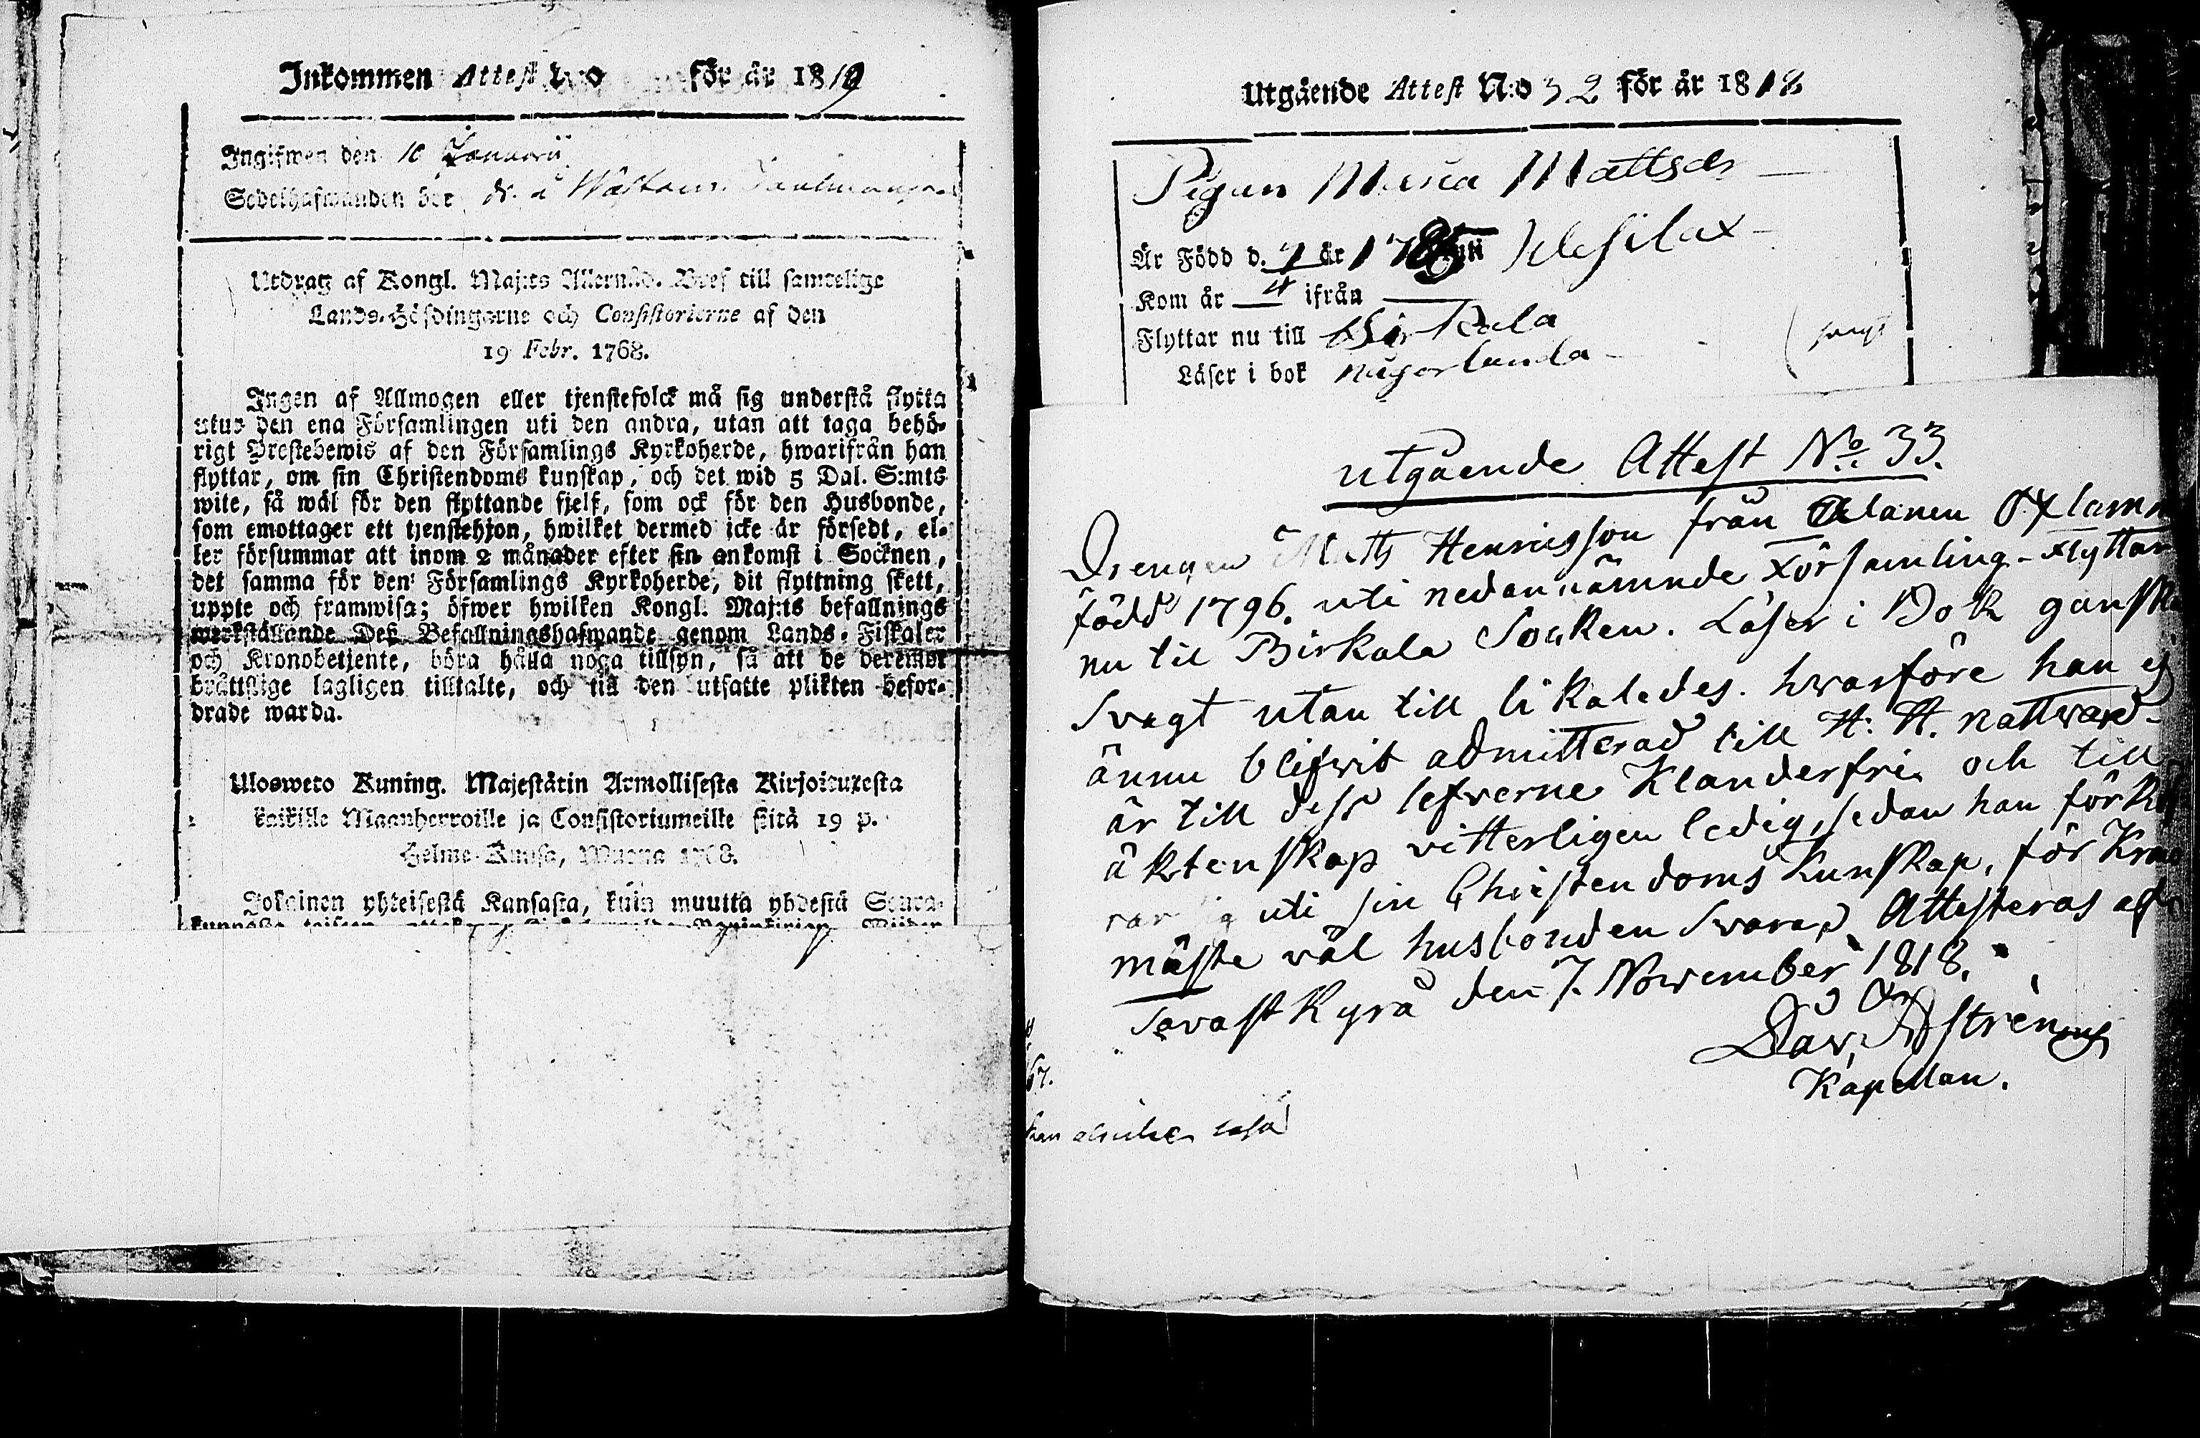 Inkommen Attest N:o för år 1819
Ingifwen den 10 Januarii
Sedelhafwanden bor
Utdrag af Kongl. Maj:ts Allernåd. Bref till samtelige
Lands-Höfdingarne och Consistorierne af den
19 Febr. 1768.
Ingen af Allmogen eller tjenstefolck må sig understå flytta
utur den ena Församlingen uti den andra, utan att taga behö-
rigt Prestebewis af den Församlings Kyrkoherde, hwarifrån han
flyttar, om sin Christendoms kunskap, och det wid 5 Dal. S:mts
wite, så wäl för den flyttande sjelf, som ock för den Husbonde,
som emottager ett tjenstehjon, hwilket dermed icke är försedt, el-
ler försummar att inom 2 månader efter sin ankomst i Socknen,
det samma för den Församlings Kyrkoherde, dit flyttning skett,
uppte och framwisa; öfwer hwilken Kongl. Maj:ts befallnings
werkställande Deß Befallningshafwande genom Lands-Fiskaler
och Kronobetjente, böra hålla noga tillsyn, så att de deremot
bråttslige lagligen tilltalte, och till den utsatte plikten befor-
drade warda.
Ulosweto Kuning. Majestätin Armollisesta Kirjoituxesta
kaikille Maanherroille ja Consistoriumeille siitä 19 p.
Helme-Kuusa, Wuona 1768.
Jokainen yhteisestä Kansasta, kuin muutta yhdestä Seura-
Utgående Attest N:o 32 för år 1818
Pigan Maria Mattsdr
Är Född d. 7/4 år 1785 uti Wesilax
Kom år — ifrån —
Flyttar nu till Birkala
Läser i bok någorlunda
utgående Attest No 33.
Drengen Matts Henricsson från
född 1796. uti nedannämnde Församling - Flyttar
nu til Birkala Socken. Läser i Bok ganska
Svagt utan till likaledes. hwarföre han ej
ännu blifwit admitterad till H. H. nattward
är till dess lefverne Klanderfri och till
äktenskap vitterligen ledig, sedan han förkof
rar sig uti sin Christendoms Kunskap, för Krono
måste väl husbonden Svara, Attesteras af
Tavastkyrå den 7. November 1818.
Dav. Astrénius
Kapellan.